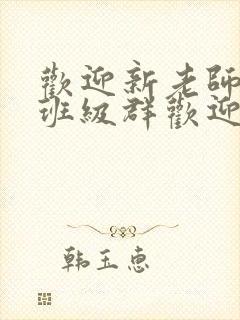 歡迎新老師
班級群歡迎
韩玉惠